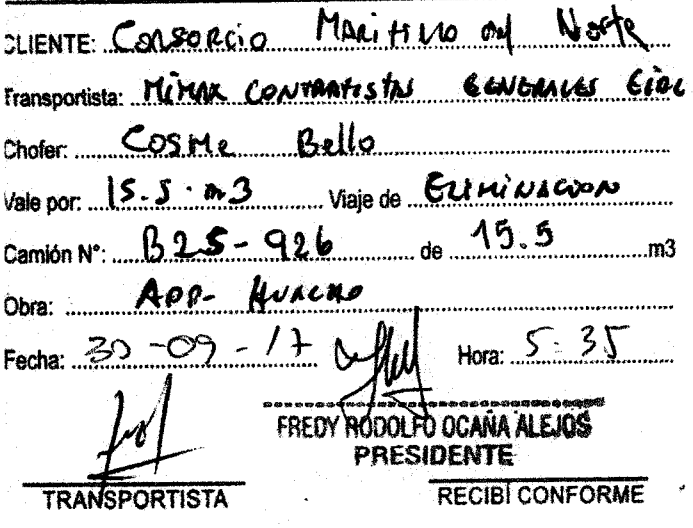 CLIENTE: Consorcio Maritimo del Norte
Transportista: MiMAX CONTRATISTAS GENERALES EIRL
Chofer: COSMe Bello
Vale por: 15.5 m3 Viaje de ELIMINACION
Camión N°: B25-926 de 15.5 m3
Obra: APP- HUACHO
Fecha: 30-09-17 Hora: 5:35
FREDY RODOLFO OCAÑA ALEJOS
PRESIDENTE
TRANSPORTISTA RECIBÍ CONFORME